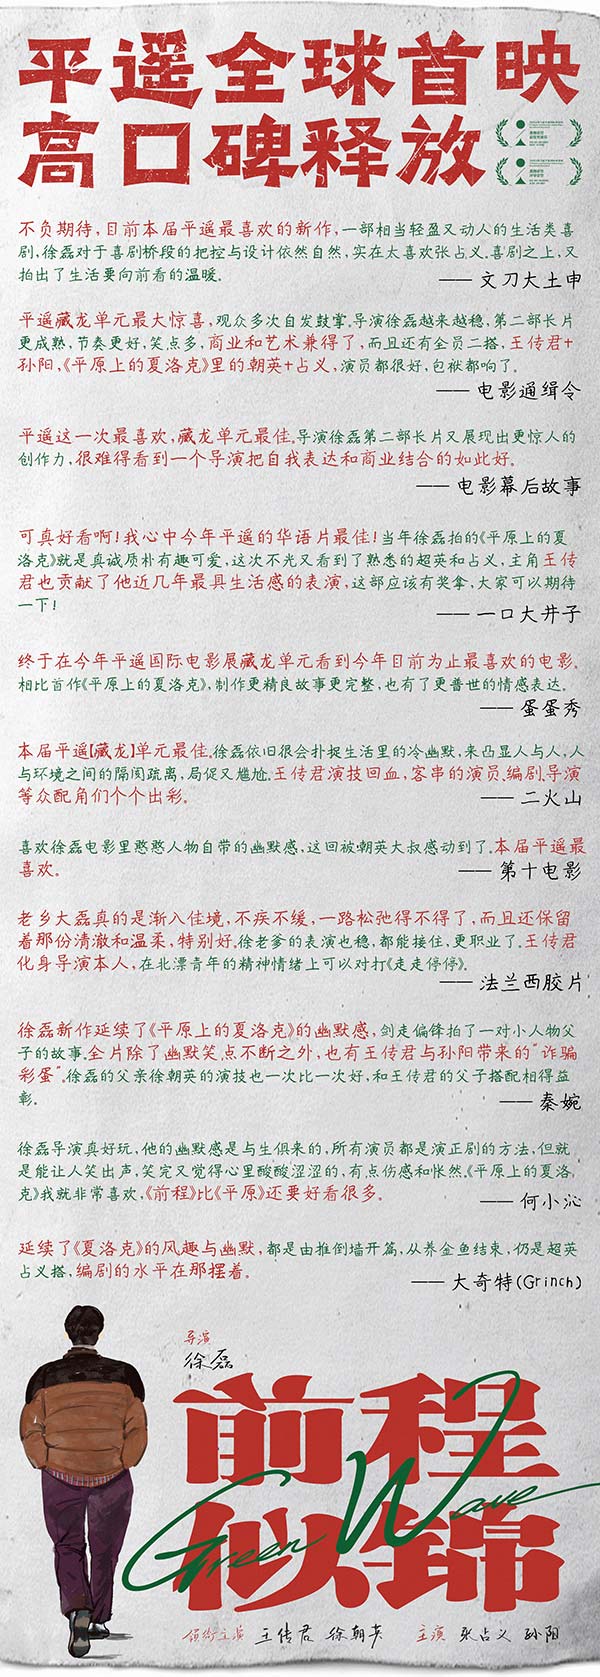 平遥全球首映
高口碑释放
不负期待,目前本届平遥最喜欢的新作,一部相当轻盈又动人的生活类喜
剧,徐磊对于喜剧桥段的把控与设计依然自然,实在太喜欢张占义。喜剧之上,又
拍出了生活要向前看的温暖。
—— 文刀大土申
平遥藏龙单元最大惊喜,观众多次自发鼓掌。导演徐磊越来越稳,第二部长片
更成熟,节奏更好,笑点多,商业和艺术兼得了,而且还有全员二搭,王传君+
孙阳,《平原上的夏洛克》里的朝英+占义,演员都很好,包袱都响了。
—— 电影通缉令
平遥这一次最喜欢,藏龙单元最佳。导演徐磊第二部长片又展现出更惊人的
创作力,很难得看到一个导演把自我表达和商业结合的如此好。
—— 电影幕后故事
可真好看啊!我心中今年平遥的华语片最佳!当年徐磊拍的《平原上的夏
洛克》就是真诚质朴有趣可爱,这次不光又看到了熟悉的超英和占义,主角王传
君也贡献了他近几年最具生活感的表演,这部应该有奖拿,大家可以期待
一下!
—— 一口大井子
终于在今年平遥国际电影展藏龙单元看到今年目前为止最喜欢的电影。
相比首作《平原上的夏洛克》,制作更精良故事更完整,也有了更普世的情感表达。
—— 蛋蛋秀
本届平遥【藏龙】单元最佳。徐磊依旧很会扑捉生活里的冷幽默,来凸显人与人,人
与环境之间的隔阂疏离,局促又尴尬。王传君演技回血,客串的演员、编剧、导演
等众配角们个个出彩。
—— 二火山
喜欢徐磊电影里憨憨人物自带的幽默感,这回被朝英大叔感动到了。本届平遥最
喜欢。
—— 第十电影
老乡大磊真的是渐入佳境,不疾不缓,一路松弛得不得了,而且还保留
着那份清澈和温柔,特别好。徐老爹的表演也稳,都能接住,更职业了。王传君
化身导演本人,在北漂青年的精神情绪上可以对打《走走停停》。
—— 法兰西胶片
徐磊新作延续了《平原上的夏洛克》的幽默感,剑走偏锋拍了一对小人物父
子的故事。全片除了幽默笑点不断之外,也有王传君与孙阳带来的“诈骗
彩蛋”。徐磊的父亲徐朝英的演技也一次比一次好,和王传君的父子搭配相得益
彰。
—— 秦婉
徐磊导演真好玩,他的幽默感是与生俱来的,所有演员都是演正剧的方法,但就
是能让人笑出声,笑完又觉得心里酸酸涩涩的,有点伤感和怅然。《平原上的夏洛
克》我就非常喜欢,《前程》比《平原》还要好看很多。
—— 何小沁
延续了《夏洛克》的风趣与幽默,都是由推倒墙开篇,从养金鱼结束,仍是超英
占义搭,编剧的水平在那摆着。
—— 大奇特(Grinch)
导演
徐磊
前程
Green Wave
似锦
领衔主演 王传君 徐朝英 主演 张占义 孙阳